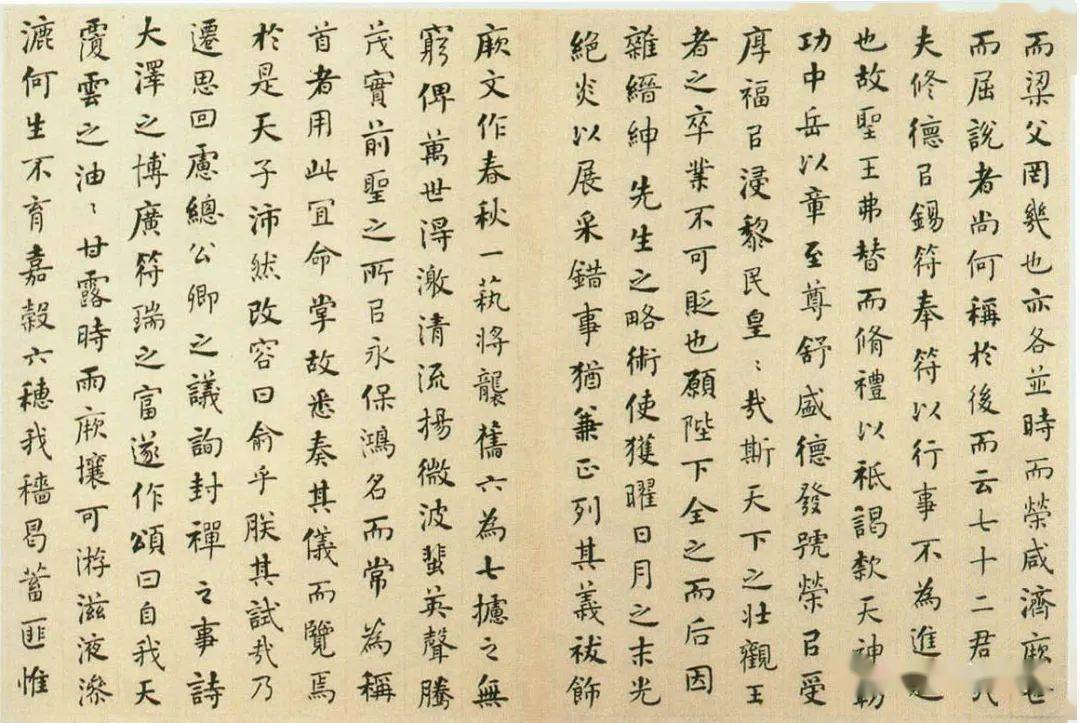 而梁父罔幾也亦各並時而榮咸濟厥世
而屈說者尚何稱於後而云七十二君哉
夫修德㠯錫符奉符以行事不為進越
也故聖王弗替而脩禮以祇謁款天神勒
功中岳以章至尊舒盛德發號榮㠯受
厚福㠯浸黎民皇〻哉斯天下之壯觀王
者之卒業不可貶也願陛下全之而后因
雜縉紳先生之略術使獲曜日月之末光
絕炎以展采錯事猶兼正列其義祓飾
厥文作春秋一蓺將襲舊六為七攄之無
窮俾萬世得激清流揚微波蜚英聲騰
茂實前聖之所㠯永保鴻名而常為稱
首者用此宜命掌故悉奏其儀而覽焉
於是天子沛然改容曰俞乎朕其試哉乃
遷思回慮總公卿之議詢封禪之事詩
大澤之博廣符瑞之富遂作頌曰自我天
覆雲之油〻甘露時雨厥壤可游滋液滲
漉何生不育嘉穀六穗我穡曷蓄匪惟